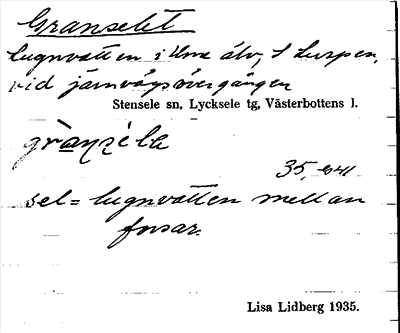 Granselet
Lugnvatten i Ume älv, i Lurpen,
vid järnvägsövergången
Stensele sn, Lycksele tg, Västerbottens l.
35,
sel = lugnvatten mellan
forsar.
Lisa Lidberg 1935.